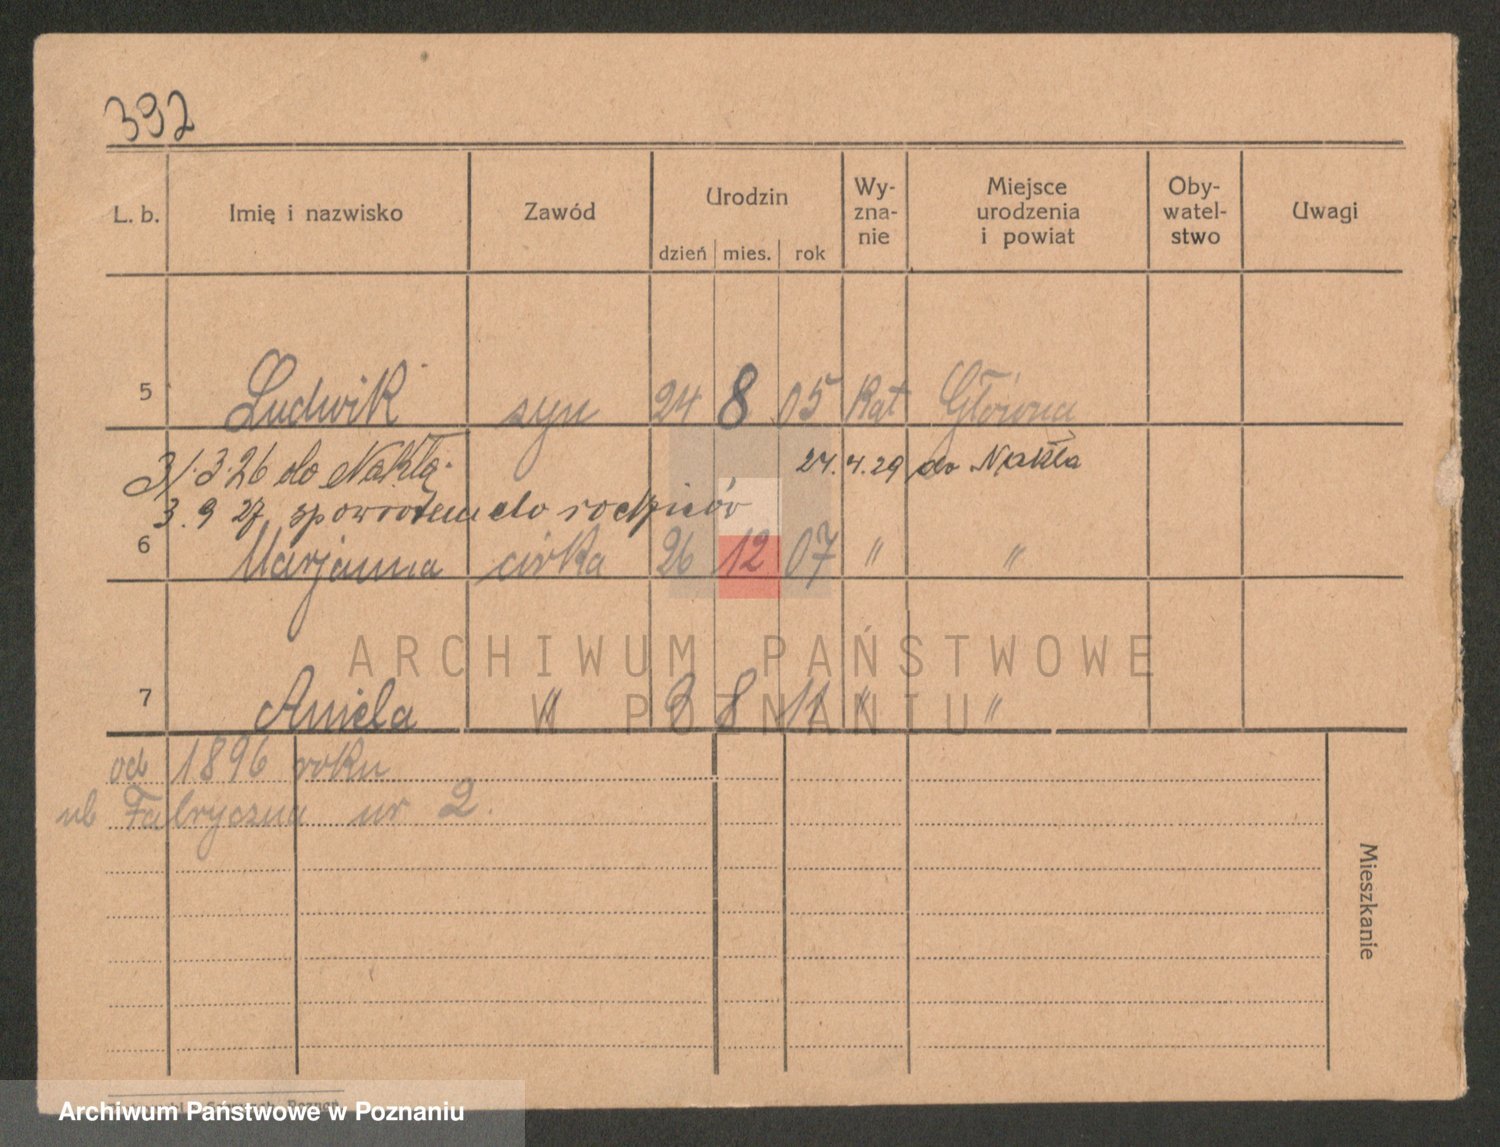 392
L. b. Imię i nazwisko Zawód Urodzin dzień mies. rok Wy-zna-nie Miejsce urodzenia i powiat Oby-watel-stwo Uwagi
5 Ludwik syn 24 8 05 Kat Główna
31.3.26 do Nakła. 24.4.29 do Nakła
3.9 27 spowrotem do rodziców
6 Marjanna córka 26 12 07 " "
7 Aniela " 3 8 11 " "
od 1896 roku
ul Fabryczna nr 2.
Mieszkanie
ARCHIWUM PAŃSTWOWE
W POZNANIU
Poznań
Archiwum Państwowe w Poznaniu